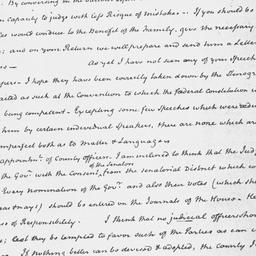 By conversing in the various
capacity to judge with less Risque of mistakes — If you should be
would conduce to the benefit of the Family, give the necessary
; and on your Return we will prepare and send him a Letter
As yet I have not seen any of your Speech
per — I hope they have been correctly taken down by the Stenogr
cited as such at the Convention to which the federal constitution
being competent — Excepting some few Speeches which were
him by certain individual Speakers, there are none which are
imperfect both as to Matter & Language
appointmt. of County officers. I am inclined to think that the Jud
the Govr. with the Consent of the Senators from the senatorial District which
Every nomination of the Govr. and also their votes (which sh
reasons) should be entered on the Journals of the House. He
ss of Responsibility. I think that no judicial officers shou
; lest they be tempted to favor such of the Parties as can
If nothing better can be devised & adopted, the county